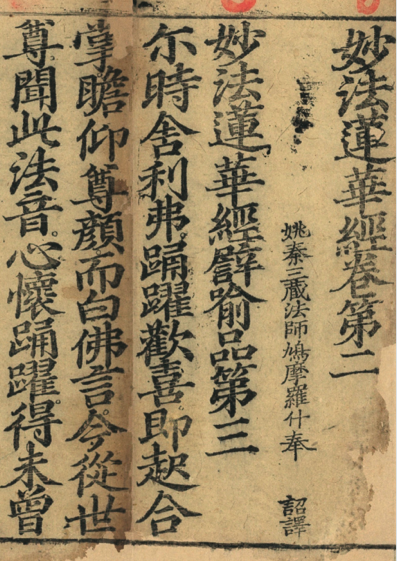 妙法蓮華經卷第二
姚秦三藏法師鳩摩羅什奉　詔譯
妙法蓮華經譬喻品第三
尒時舍利弗踊躍歡喜即起合
掌瞻仰尊顏而白佛言今從世
尊聞此法音心懷踊躍得未曾